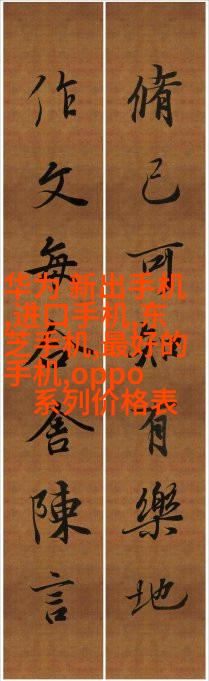 脩己可知有樂地
作文每舍陳言
华为 新出手机
,进口手机,东
芝手机,最好的
手机,oppo
系列价格表